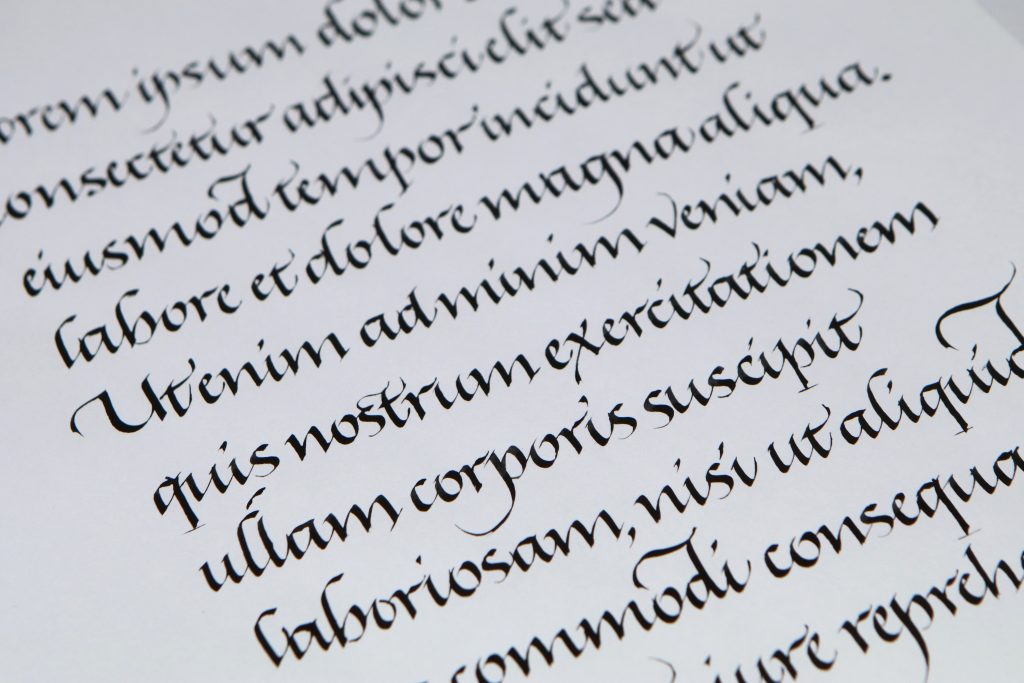 orem ipsum dolor
consectetur adipisci elit sed
eiusmod tempor incidunt ut
labore et dolore magna aliqua.
Ut enim ad minim veniam,
quis nostrum exercitationem
ullam corporis suscipit
laboriosam, nisi ut aliquid
commodi consequa
iure reprehe